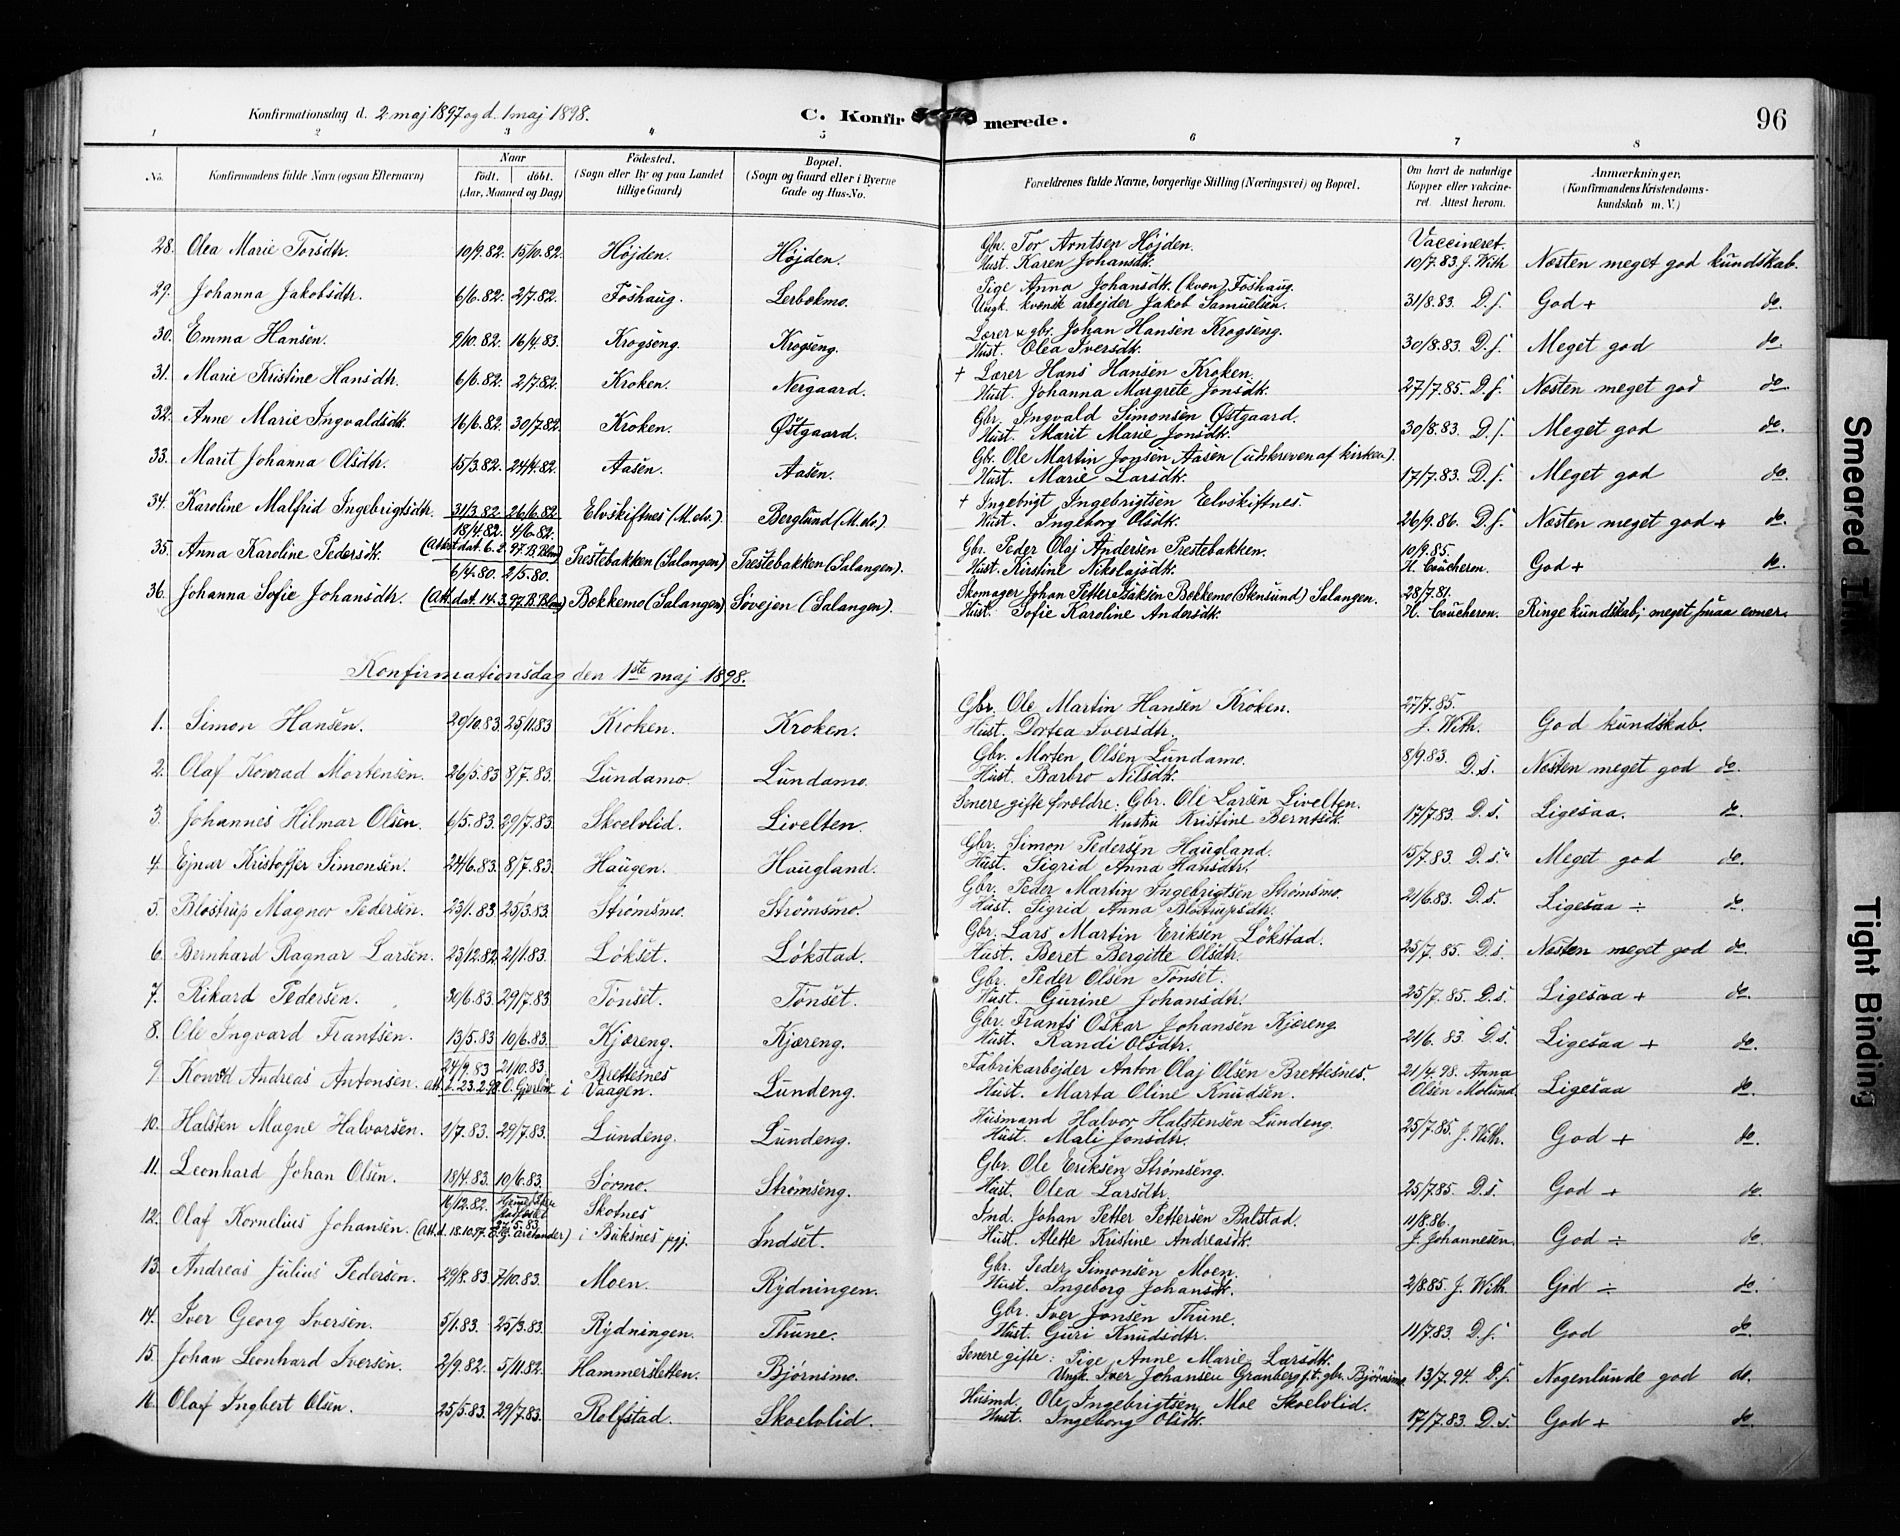 Konfirmationsdag d. 2 maj 1897 og d. 1 maj 1898.
C. Konfirmerede.
96
1 2 3 4 5 6 7 8
No. Konfirmandens fulde Navn (ogsaa Efternavn) Naar født. døbt. (Aar, Maaned og Dag) Fødested. (Sogn eller By og paa Landet tillige Gaard) Bopæl. (Sogn og Gaard eller i Byerne Gade og Hus-No. Forældrenes fulde Navne, borgerlige Stilling (Næringsvei) og Bopæl. Om havt de naturlige Kopper eller vaccineret. Attest herom. Anmærkninger. (Konfirmandens Kristendomskundskab m. V.)
28. Olea Marie Torsdtr. 10/9.82. 15/10.82. Højden. Højden. Gbr. Tor Arntsen Højden. Hust. Karen Johansdtr. Vaccineret. 10/7.83 J. With Næsten meget god kundskab.
29. Johanna Jakobsdtr. 6/6.82. 2/7.82. Foshaug. Lerbekmo. Pige Anna Johansdtr. (kvæn) Foshaug. Ungk. kvensk arbejder Jakob Samuelsen. 31/8.83. D.s. God + do.
30. Emma Hansen. 9/10.82. 16/4.83. Krogseng. Krogseng. Lærer & gbr. Johan Hansen Krogseng. Hust. Olea Iversdtr. 30/8.83. D.s. Meget god do.
31. Marie Kristine Hansdtr. 6/6.82. 2/7.82. Kroken. Nergaard. † Lærer Hans Hansen Kroken. Hust. Johanna Margrete Jonsdtr. 27/7.85. D.s. Næsten meget god do.
32. Anne Marie Ingvaldsdtr. 16/6.82. 30/7.82. Kroken. Østgaard. Gbr. Ingvald Simonsen Østgaard. Hust. Marit Marie Jonsdtr. 30/8.83. D.s. Meget god do.
33. Marit Johanna Olsdtr. 15/3.82. 24/4.82. Aasen. Aasen. Gbr. Ole Martin Jonsen Aasen (udskreven af kirken). Hust. Marie Larsdtr. 17/7.83. D.s. Meget god do.
34. Karoline Malfrid Ingebrigtsdtr. 31/3.82. 26/6.82. Elvskiftnes (M.elv.) Berglund (M.elv). † Ingebrigt Ingebrigtsen Elvskiftnes. Hust. Ingeborg Olsdtr. 26/9.86. D.s. Næsten meget god + do.
35. Anna Karoline Pedersdtr. 18/4.82. 4/6.82. (Attst. dat. 6.2.97. B. Blom) Prestebakken (Salangen) Prestebakken (Salangen). Gbr. Peder Olaj Andersen Prestebakken. Hust. Kirstine Nikolajsdtr. 10/9.85. H. Coucheron. God + do.
36. Johanna Sofie Johansdtr. 6/4.80. 2/5.80. (Att. dat. 14.3.97. B. Blom) Bekkemo (Salangen) Søvejen (Salangen). Skomager Johan Petter Isaksen Bekkemo (Stensund) Salangen. Hust. Sofie Karoline Andersdtr. 28/7.81. H. Coucheron. Ringe kundskab; meget smaa evner.
Konfirmationsdag den 1ste maj 1898.
1. Simon Hansen. 29/10.83. 25/11.83 Kroken. Kroken. Gbr. Ole Martin Hansen Kroken. Hust. Dortea Iversdtr. 27/7.85. J. With. God kundskab.
2. Olaf Konrad Mortensen. 26/5.83 8/7.83. Lundamo. Lundamo. Gbr. Morten Olsen Lundamo. Hust. Barbro Nilsdtr. 8/9.83. D.s. Næsten meget god do.
3. Johannes Hilmar Olsen. 6/5.83. 29/7.83. Skoelvlid. Livelten. Senere gifte forældre: Gbr. Ole Larsen Livelten. Hustru Kristine Berntsdtr. 17/7.83. D.s. Ligesaa. do.
4. Ejnar Kristoffer Simonsen. 24/6.83. 8/7.83. Haugen. Haugland. Gbr. Simon Pedersen Haugland. Hust. Sigrid Anna Hansdtr. 15/7.83. D.s. Meget god do.
5. Blostrup Magnor Pedersen. 23/1.83. 25/3.83. Strømsmo. Strømsmo. Gbr. Peder Martin Ingebrigtsen Strømsmo. Hust. Sigrid Anna Blostrupsdtr. 21/6.83. D.s. Ligesaa ÷ do.
6. Bernhard Ragnar Larsen. 23/12.82. 21/1.83. Løkset. Løkstad. Gbr. Lars Martin Eriksen Løkstad. Hust. Beret Bergitte Olsdtr. 25/7.85. D.s. Næsten meget god do.
7. Rikard Pedersen. 30/6.83. 29/7.83 Tønset. Tønset. Gbr. Peder Olsen Tønset. Hust. Gurine Johansdtr. 25/7.85. D.s. Ligesaa + do.
8. Ole Ingvard Frantsen. 13/5.83 10/6.83. Kjæreng. Kjæreng. Gbr. Frants Oskar Johansen Kjæreng. Hust. Randi Olsdtr. 21/6.83. D.s. Ligesaa + do.
9. Konrad Andreas Antonsen. 24/9.83 21/10.83. att. d. 23.2.98 Brettesnes i Vaagen. Lundeng. Fabrikarbejder Anton Olaj Olsen Brettesnes. Hust. Marta Oline Knudsen. 21/4.98. Anna Olsen Molund. Ligesaa do.
10. Halsten Magne Halvorsen. 1/7.83. 29/7.83. Lundeng. Lundeng. Husmand Halvor Halstensen Lundeng. Hust. Mali Jonsdtr. 25/7.85. J. With. God + do.
11. Leonhard Johan Olsen. 18/4.83. 10/6.83. Sørmo. Strømseng. Gbr. Ole Eriksen Strømseng. Hust. Olea Larsdtr. 25/7.85. D.s. God + do.
12. Olaf Kornelius Johansen. 16/12.82. 5.83. (Att. d. 18.10.97. Skotnes i Buksnes pgj. Indset. Ind. Johan Petter Pettersen Balstad. Hust. Alette Kristine Andreasdtr. 11/8.86. J. Johannesen. God ÷ do.
13. Andreas Julius Pedersen. 29/8.83. 7/10.83. Moen. Rydningen. Gbr. Peder Simonsen Moen. Hust. Ingeborg Johansdtr. 2/8.85. J. With. God ÷ do.
14. Iver Georg Iversen. 5/1.83. 25/3.83. Rydningen. Thune. Gbr. Iver Jonsen Thune. Hust. Guri Knudsdtr. 11/7.83. D.s. God do.
15. Johan Leonhard Iversen. 2/9.82. 5/11.82. Hammersletten. Bjørnsmo. Senere gifte: Pige Anne Marie Larsdtr. Ungk. Iver Johansen Granberg f.t. gbr. Bjørnsmo. 13/7.94. D.s. Nogenlunde god do.
16. Olaf Ingbert Olsen. 25/5.83. 29/7.83. Rolfstad. Skoelvlid. Husmd. Ole Ingebrigtsen Moe Skoelvlid. Hust. Ingeborg Olsdtr. 17/7.83. D.s. God + do.
Smeared Ink
Tight Binding